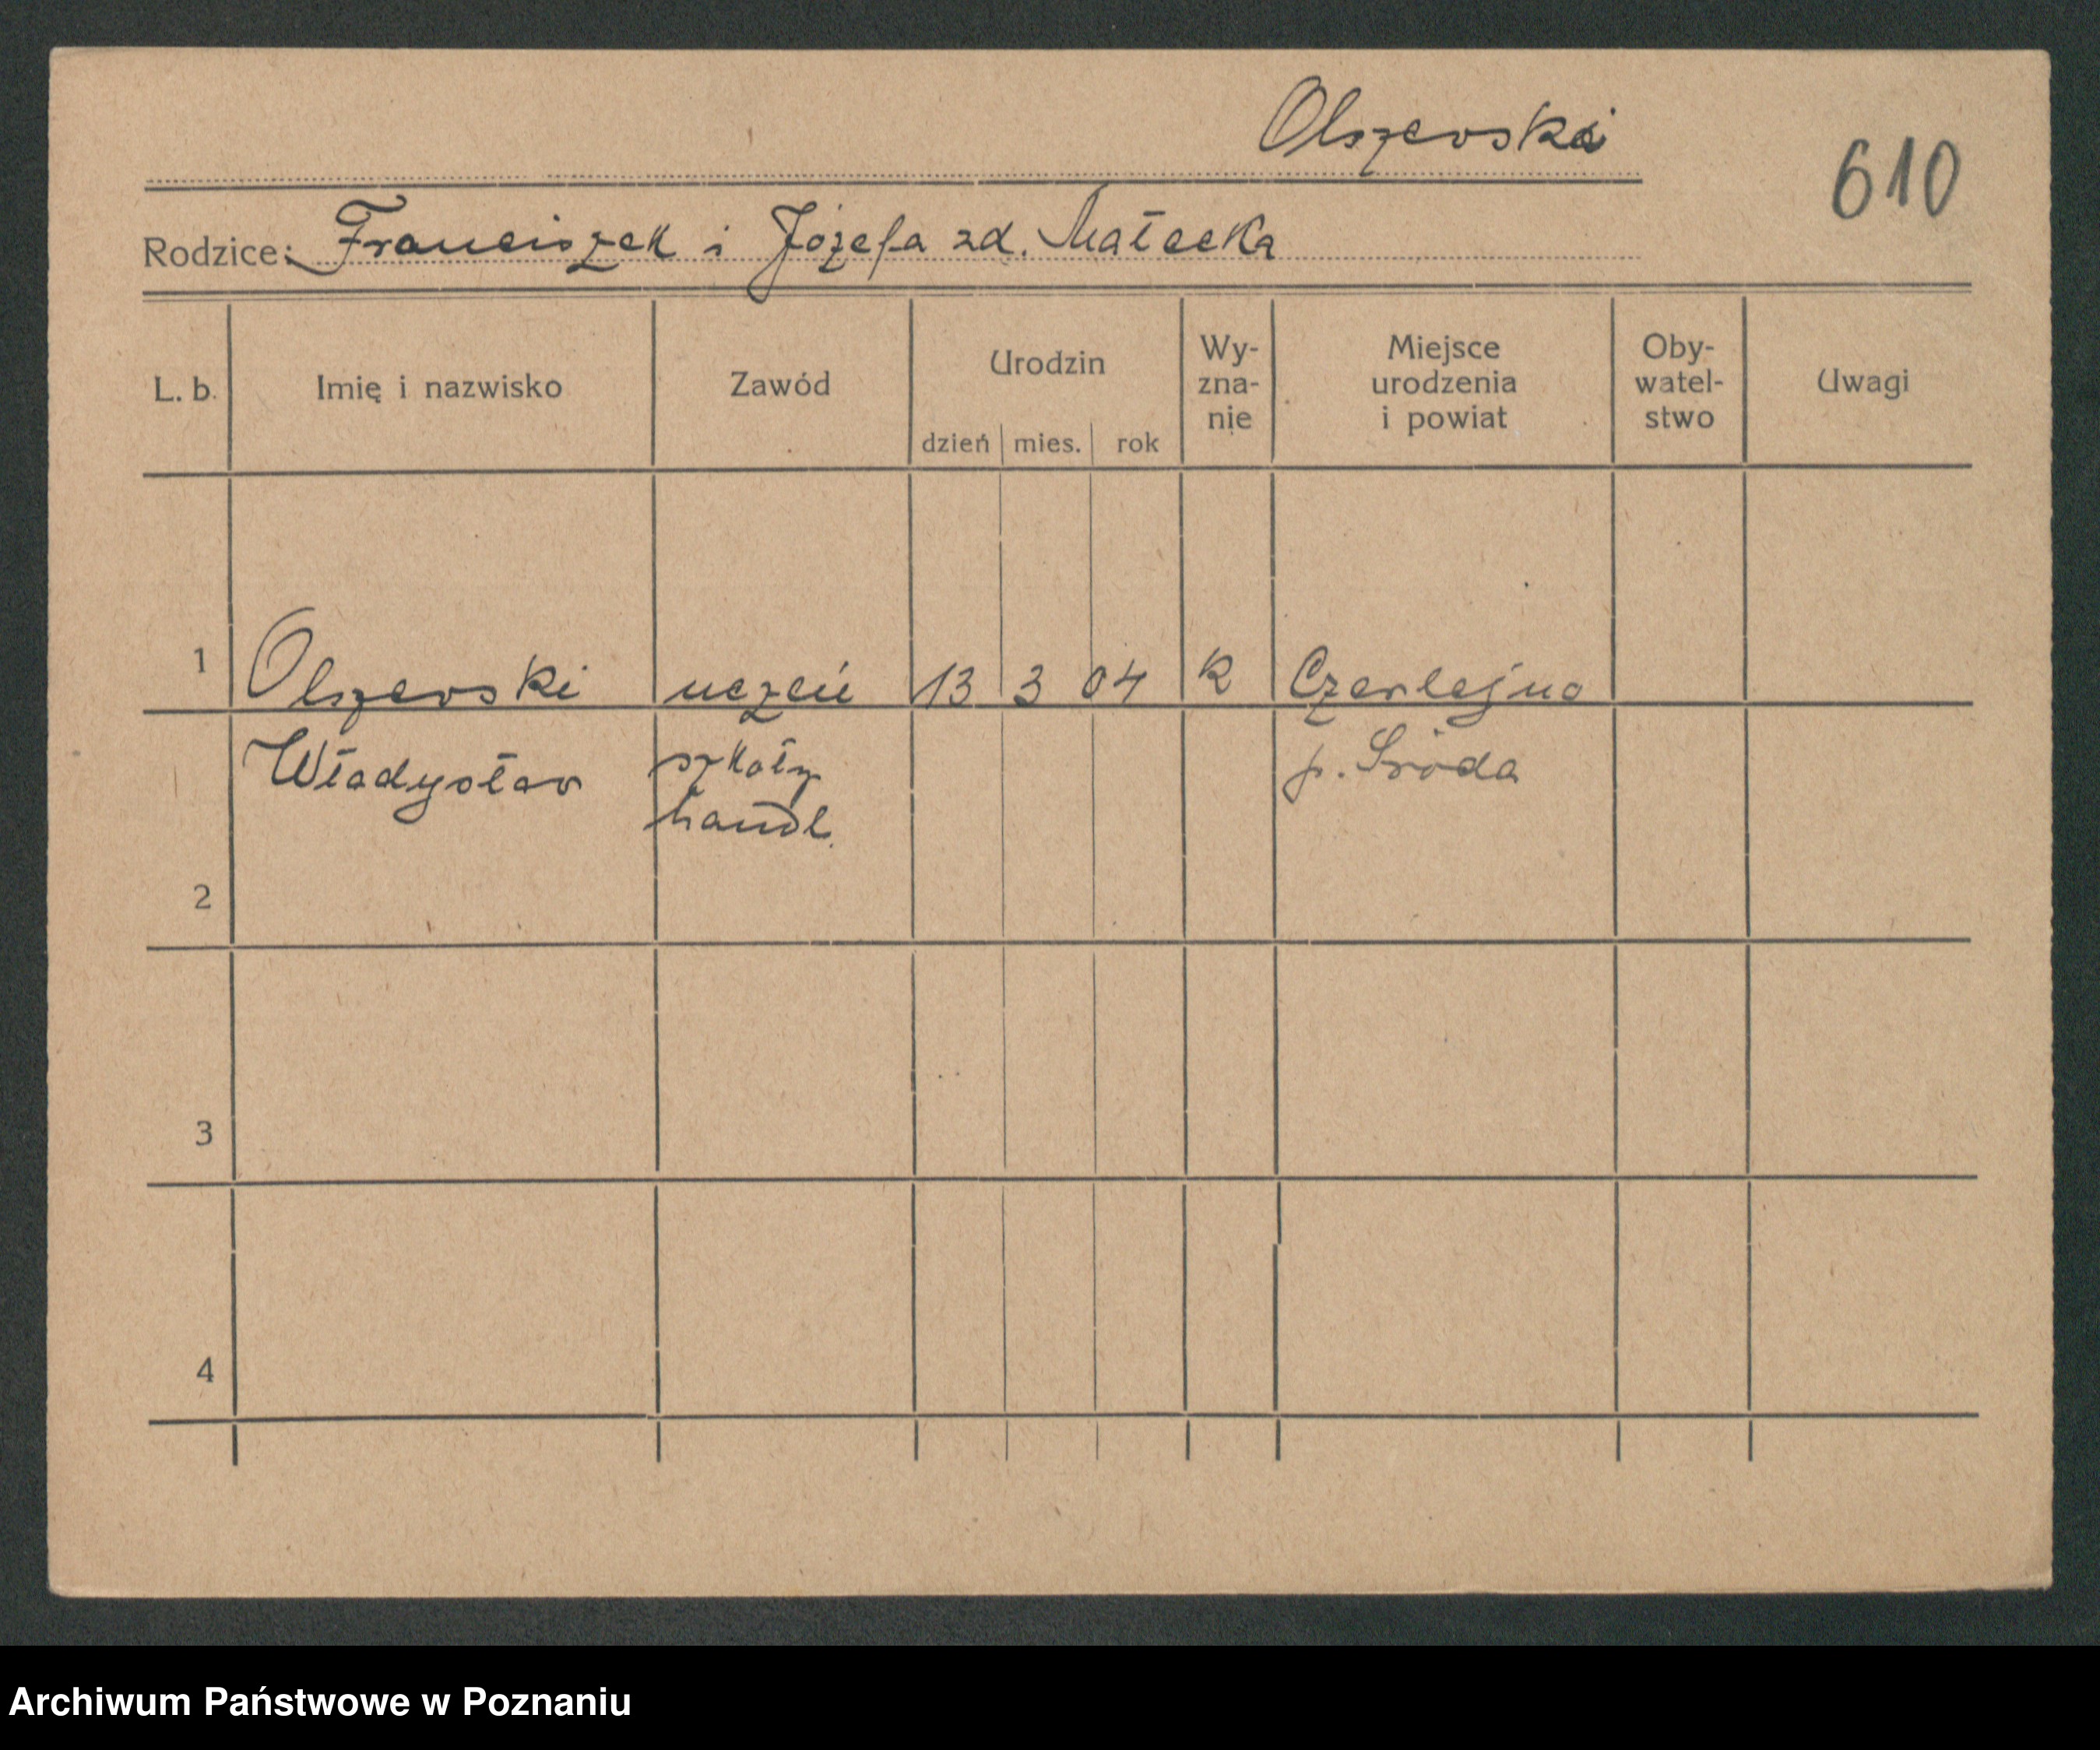 Olszewski
610
Rodzice: Franciszek i Józefa zd. Małecka
L. b. Imię i nazwisko Zawód Urodzin dzień mies. rok Wy-zna-nie Miejsce urodzenia i powiat Oby-watel-stwo Uwagi
1 Olszewski uczeń 13 3 04 k Czerlejno
Władysław szkoły p. Środa
handl.
2
3
4
Archiwum Państwowe w Poznaniu